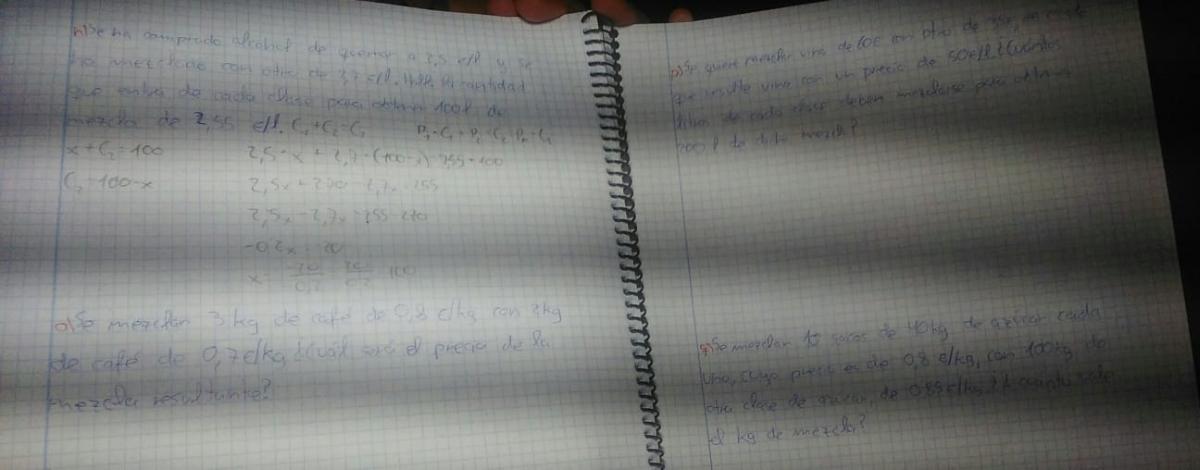 n) Se ha comprado alcohol de quemar a 2,5 €/l y se
ha mezclado con otro de 2,7 €/l. Halla la cantidad
que entra de cada clase para obtener 100 l de
mezcla de 2,55 €/l. C₁+C₂=C₃ P₁·C₁+P₂·C₂=P₃·C₃
x+C₂=100 2,5·x+2,7·(100-x)=255·100
C₂=100-x 2,5x+270-2,7x=255
2,5x-2,7x=255-270
-0,2x
x
o) Se mezclan 3 kg de café de 0,8 €/kg con 2 kg
de café de 0,7 €/kg ¿Cuál será el precio de la
mezcla resultante?
p) Se quiere mezclar vino de 60€ con otro de 35€, de
que resulte vino con un precio de 50€/l ¿Cuántos
litros de cada clase deben mezclarse para obtener
200 l de mezcla?
q) Se mezclan 10 sacos de 40kg de azúcar cada
uno, cuyo precio es de 0,8 €/kg, con 100kg de
otra clase de azúcar, de 0,85€/kg ¿A cuánto sale
el kg de mezcla?